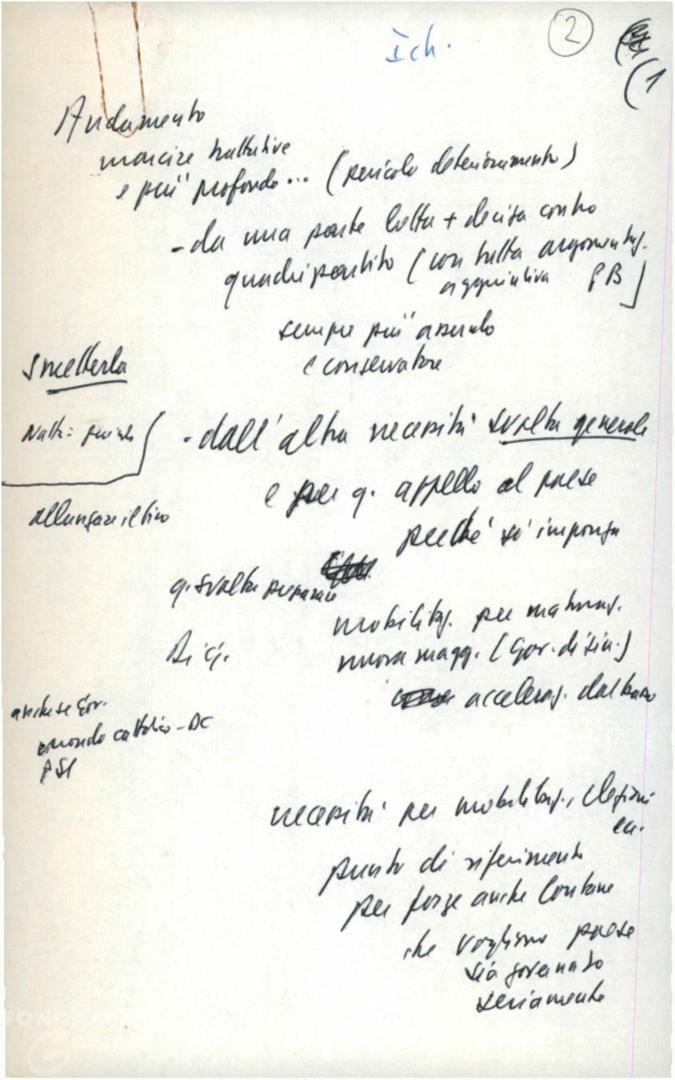 I ch.
2
(1
Andamento
marcire trattative
e più profondo... (pericolo deterioramento)
- da una parte lotta + decisa contro
quadripartito (con tutta argomentaz.
aggiuntiva PB]
sempre più assurdo
e conservatore
Smetterla
- dall'altra necessità svolta generale
e per q. appello al paese
allungare il tiro
perché si imponga
q. svolta
mobilitaz. per maturaz.
nuova magg. (Gov. di sin.)
acceleraz. dal basso
anche se gov.
mondo cattolico - DC
PSI
necessità per mobilitaz., elezioni
ecc.
punto di riferimento
per forze anche lontane
che vogliono paese
sia governato
seriamente